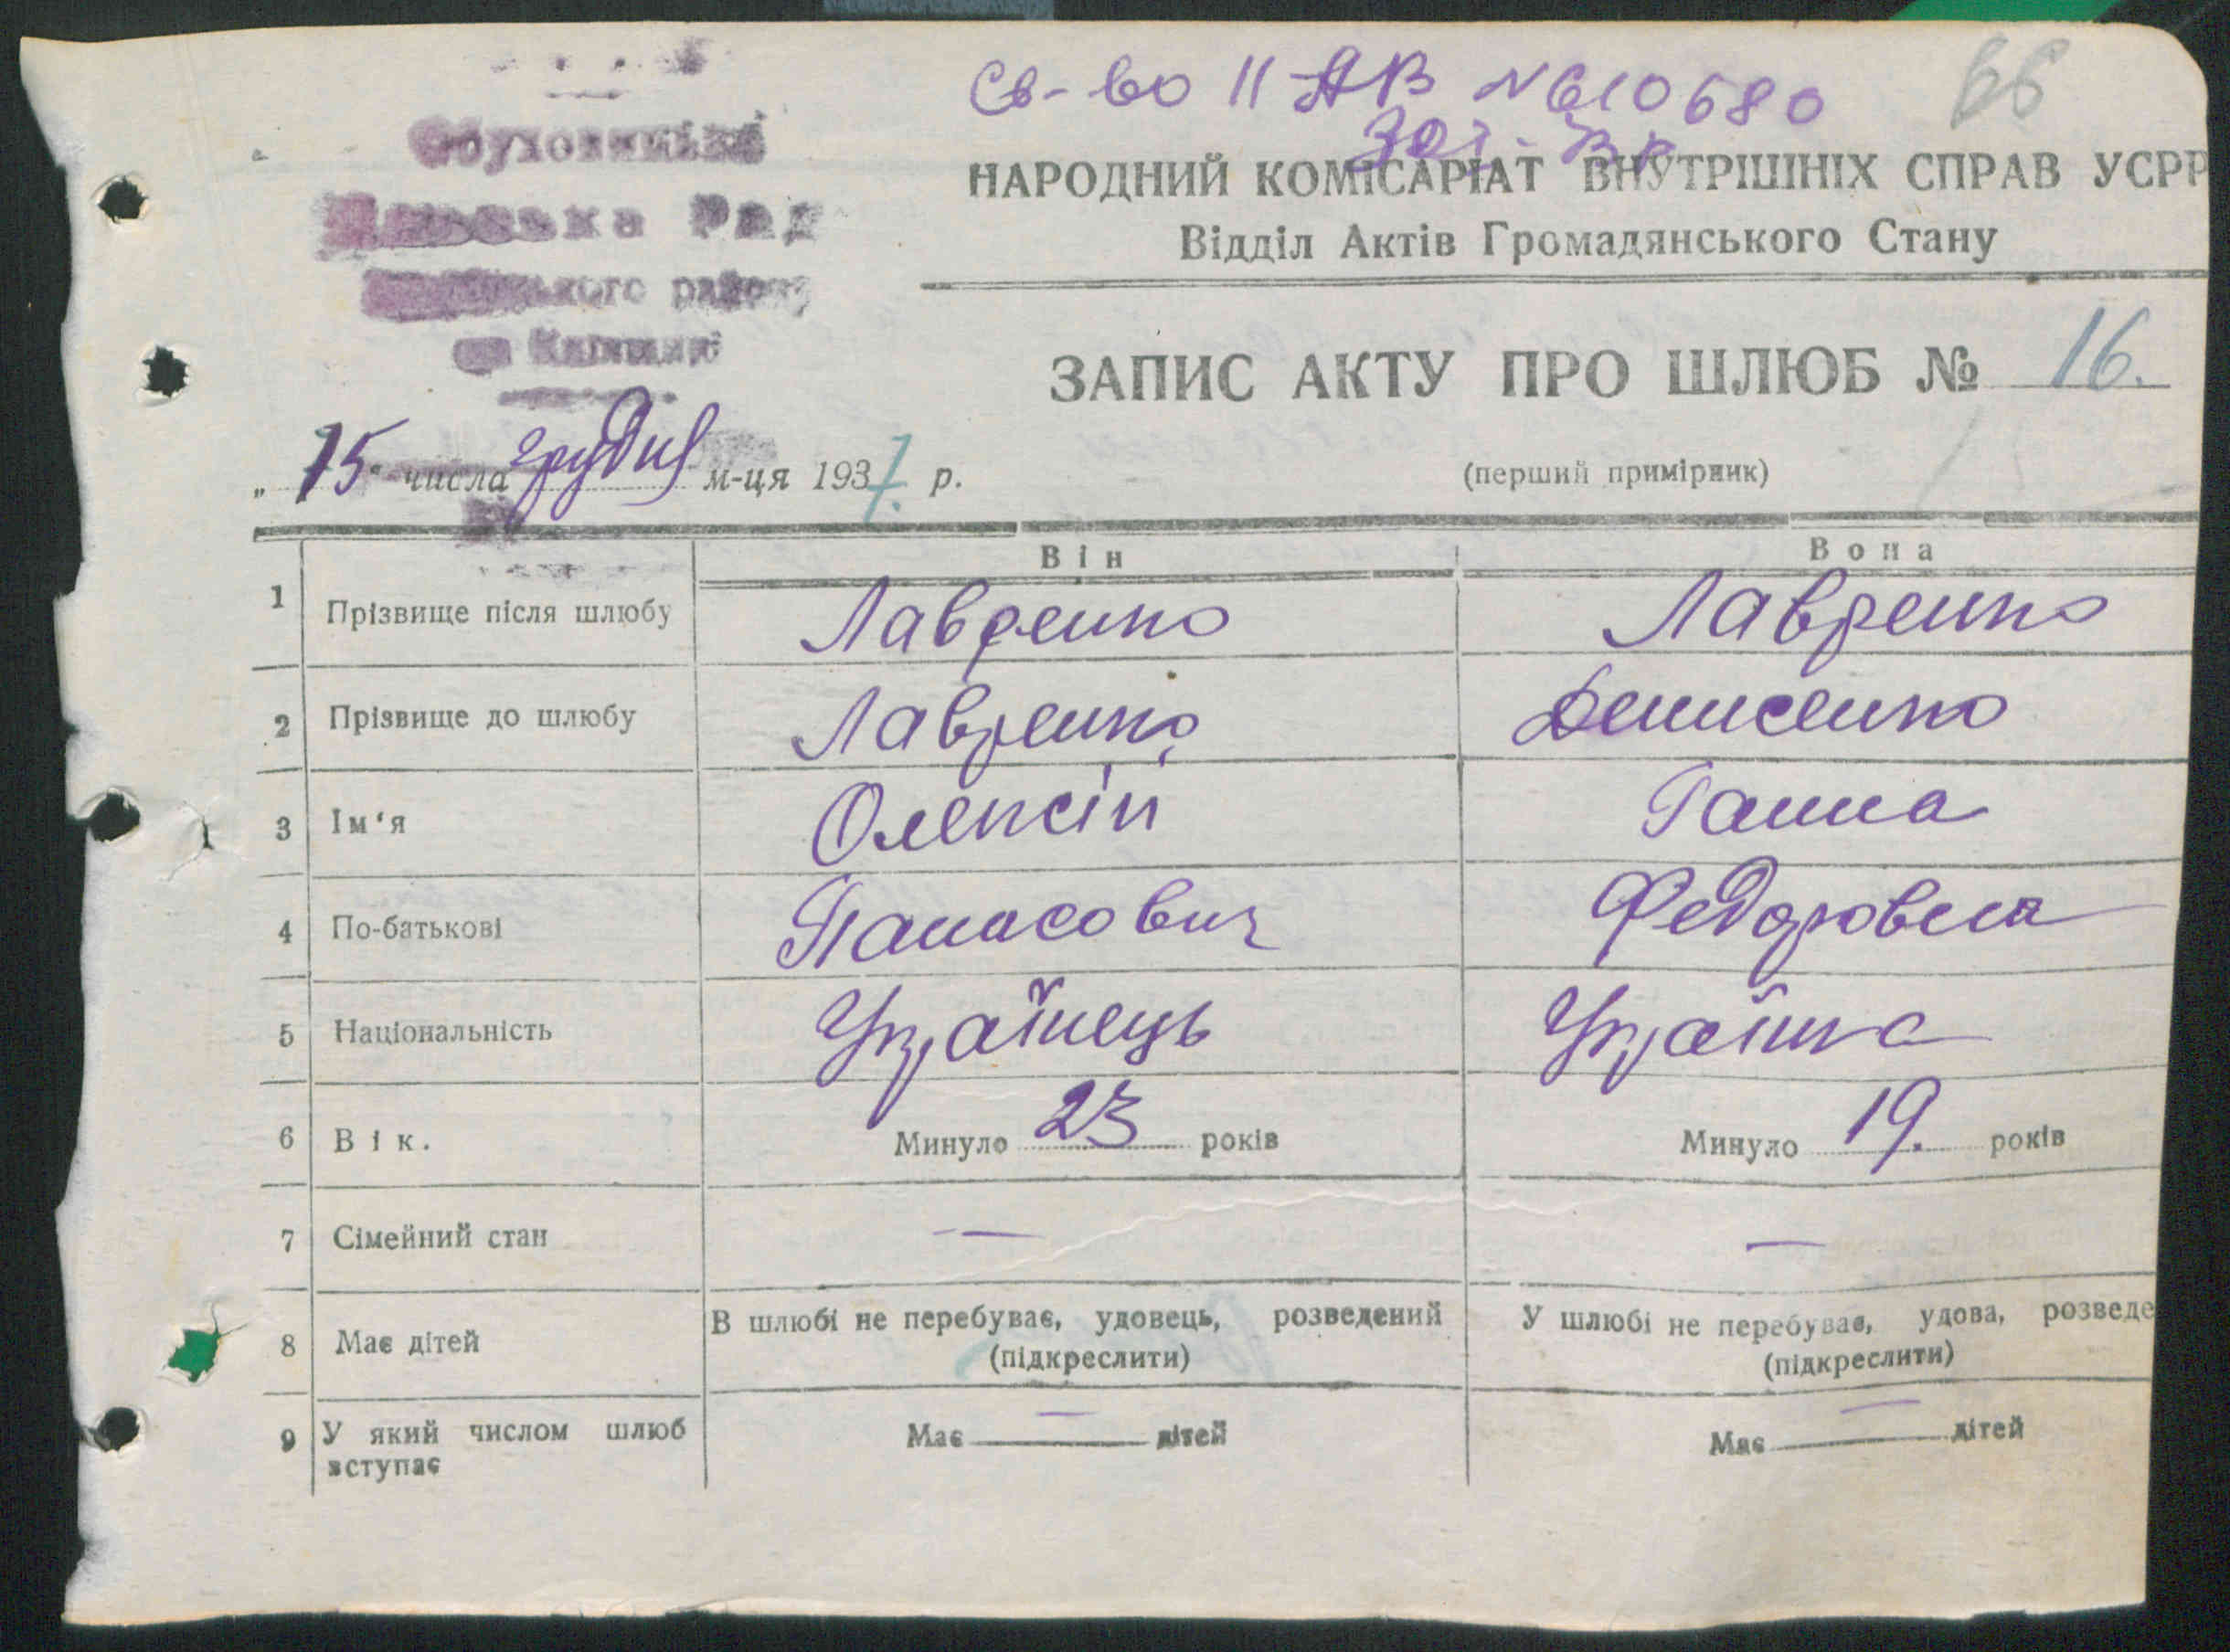 Св-во ІІ-АВ № 610680
66
НАРОДНИЙ КОМІСАРІАТ ВНУТРІШНІХ СПРАВ УСРР
Відділ Актів Громадянського Стану
Рад
району
ЗАПИС АКТУ ПРО ШЛЮБ № 16.
(перший примірник)
„ 15 " числа грудня м-ця 1937 р.
Він Вона
1 Прізвище після шлюбу Лавренко Лавренко
2 Прізвище до шлюбу Лавренко Денисенко
3 Ім'я Олексій Ганна
4 По-батькові Панасович Федоровна
5 Національність Українець Українка
6 Вік. Минуло 23 років Минуло 19. років
7 Сімейний стан — —
8 Має дітей В шлюбі не перебуває, удовець, розведений У шлюбі не перебуває, удова, розведе
(підкреслити) (підкреслити)
9 У який числом шлюб Має — дітей Має — дітей
вступає